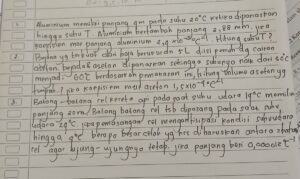 1. Aluminium memiliki panjang 9m pada suhu 20°C ketika dipanaskan
hingga suhu T. Aluminium bertambah panjang 2,88 mm, jika
koefisien muai panjang aluminium Hitung suhu T?
2. Bejana yg terbuat dari baja bervolume 5L diisi penuh dg cairan
aseton, bejana & aseton dipanaskan sehingga suhunya naik dari 30°C
menjadi 60°C berdasarkan pemanasan ini, hitung volume aseton yg
tumpah? jika koefisien muai aseton 1,5x10⁻³ C⁻¹
3. Batang-batang rel kereta api pada saat suhu udara 19°C memiliki
panjang 20m. Batang-batang rel tsb dipasang pada saat suhu
udara 29°C jika pemasangan rel mengantisipasi kondisi suhu udara
hingga berapa besar celah yg hrs diharuskan antara
rel agar ujung-ujungnya tetap, jika panjang